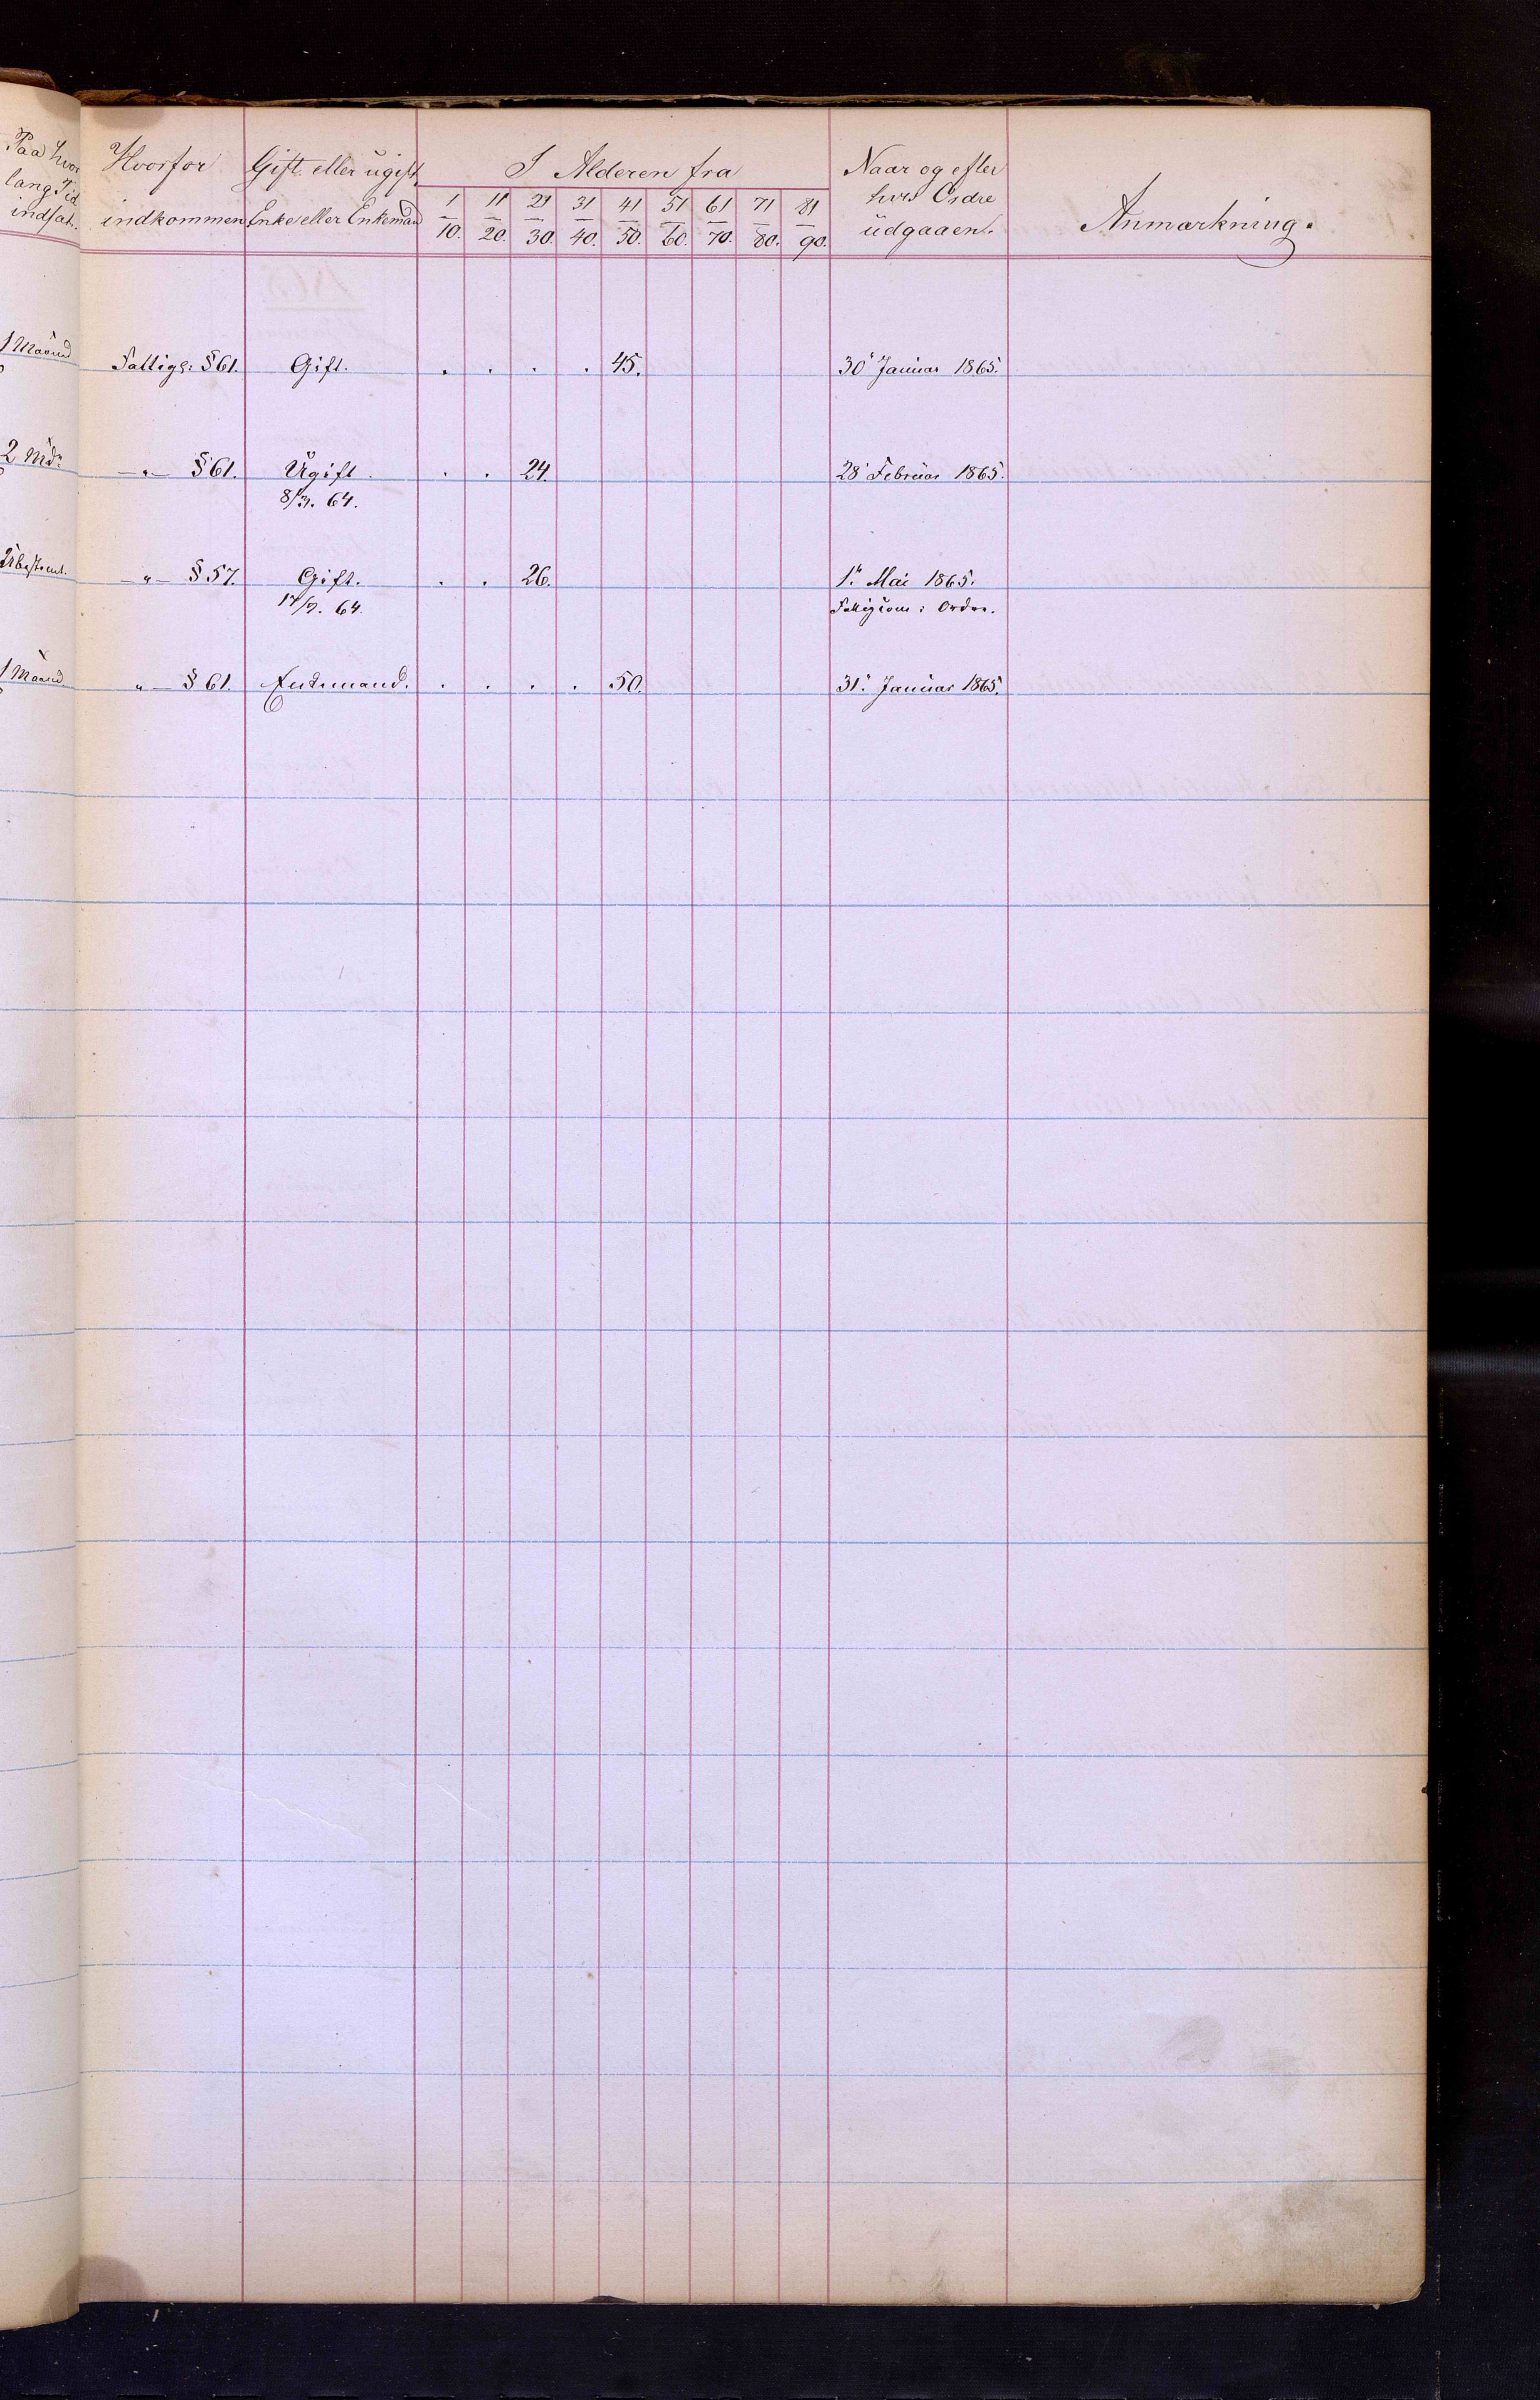 Paa hvor
lang Tid
indsat.
Hvorfor
indkommen
Gift eller ugift,
Enke eller Enkemand
I Alderen fra
1 11 21 31 41 51 61 71 81
10. 20. 30. 40. 50. 60. 70. 80. 90.
Naar og efter
hvis Ordre
udgaaen.
Anmærkning.
1 Maaned Fattigl: §61. Gift. . . . . 45. 30' Januar 1865.
2 Mdr. —"— §61. Ugift. . . 24. 28' Februar 1865.
8/3. 64.
Ubestemt. —"— §57. Gift. . . 26. 1. Mai 1865.
17/9. 64. Ordre.
1 Maaned. " — §61. Enkemand. . . . . 50. 31. Januar 1865.